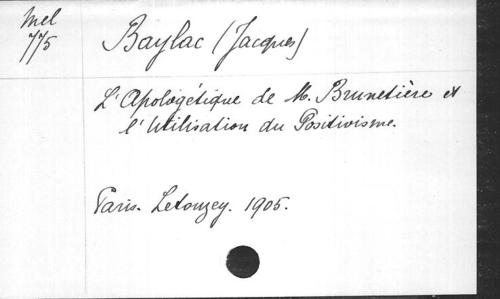 Mel
775
Baylac (Jacques)
L'Apologétique de M. Brunetière et
l'Utilisation du Positivisme.
Paris. Letouzey. 1905.